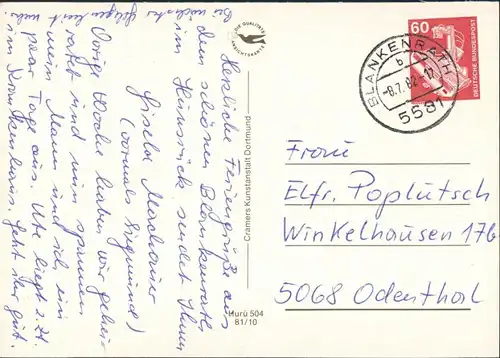 Herzliche Feriengrüße aus
dem schönen Blankenrath
im Hunsrück sendet Ihnen
Gisela Machauer
(vormals Siegmund)
Vorige Woche haben wir gehei-
ratet und nun spannen
mein Mann und ich ein
paar Tage aus. Ute liegt z. Zt.
im Krankenhaus. Geht ihr gut.
Bei nächster Gelegenheit
DIE QUALITÄTS
ANSICHTSKARTE
Cramers Kunstanstalt Dortmund
Hurü 504
81/10
60
DEUTSCHE BUNDESPOST
BLANKENRATH
b
-8.7.82-17
5581
Frau
Elfr. Poplutsch
Winkelhausen 17b
5068 Odenthal